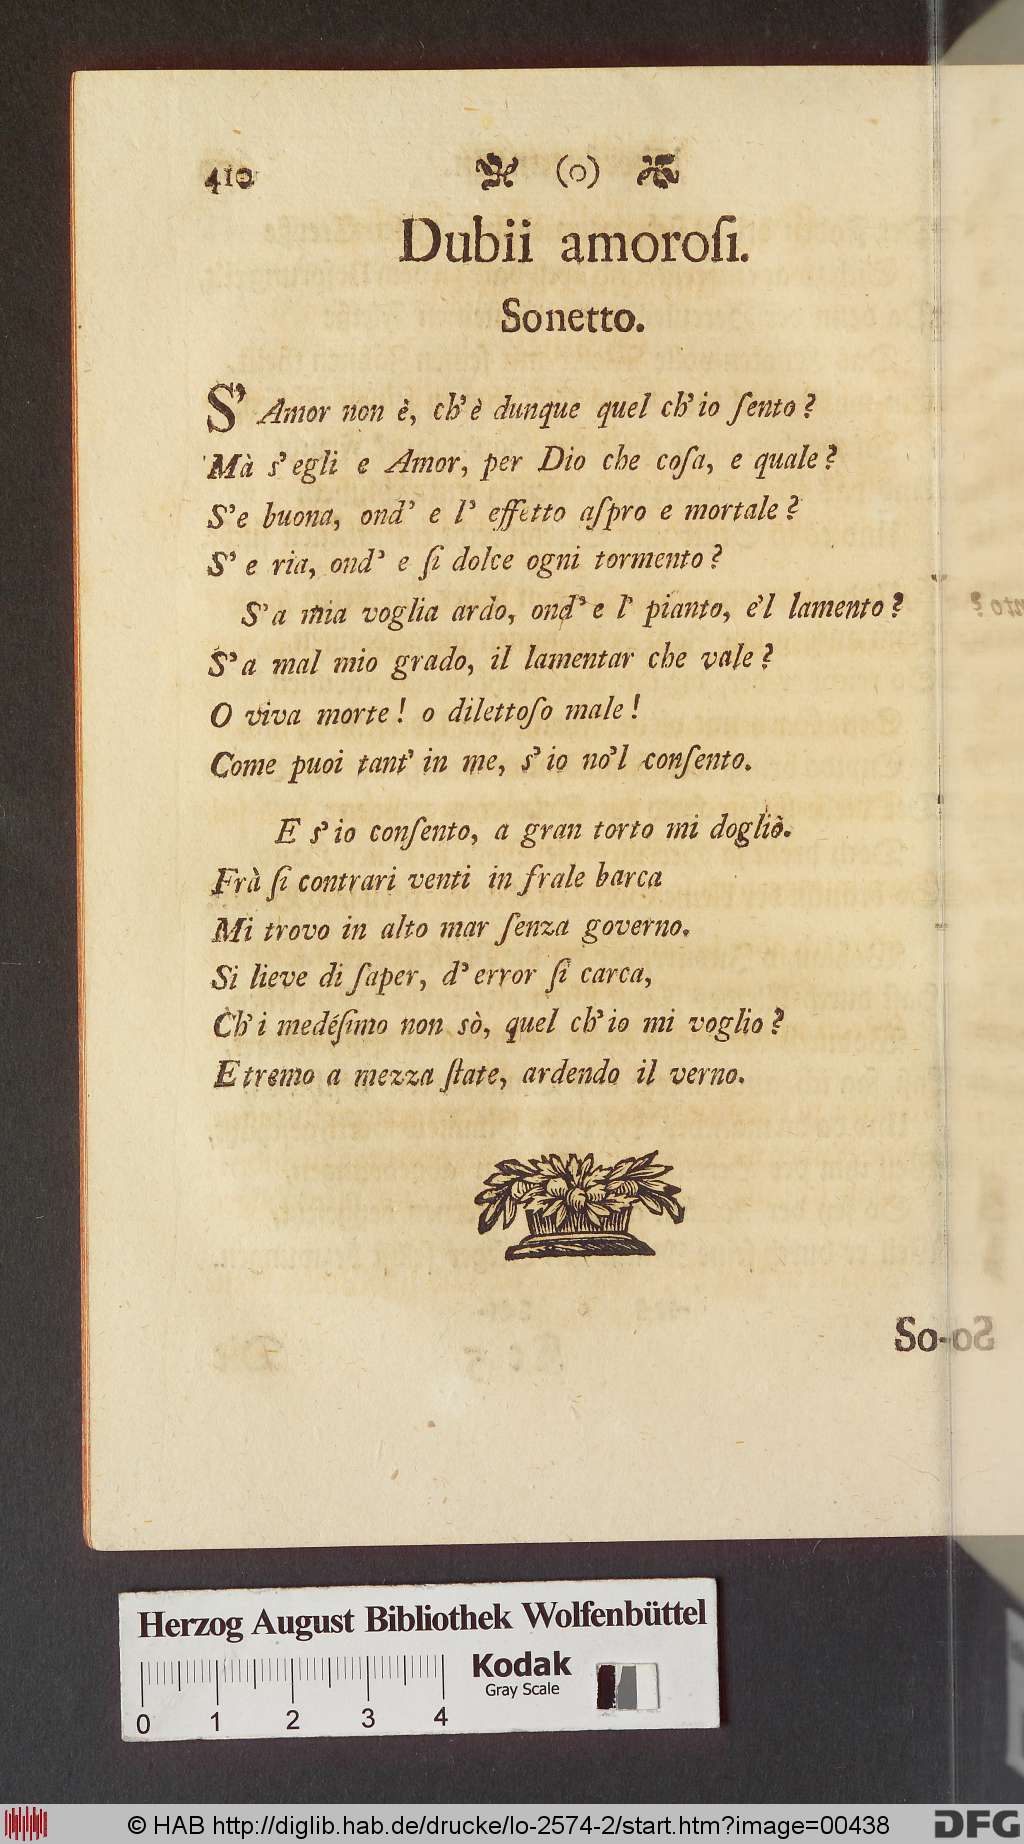 410 (o)
Dubii amoroſi.
Sonetto.
S' Amor non è, ch' è dunque quel ch' io ſento?
Mà s' egli e Amor, per Dio che coſa, e quale?
S' e buona, ond' e l' effetto aſpro e mortale?
S' e ria, ond' e ſi dolce ogni tormento?
S' a mia voglia ardo, ond' e l' pianto, e'l lamento?
S' a mal mio grado, il lamentar che vale?
O viva morte! o dilettoſo male!
Come puoi tant' in me, s' io no'l conſento.
E s' io conſento, a gran torto mi dogliò.
Frà ſi contrari venti in frale barca
Mi trovo in alto mar ſenza governo.
Si lieve di ſaper, d' error ſi carca,
Ch' i medéſimo non sò, quel ch' io mi voglio?
E tremo a mezza ſtate, ardendo il verno.
So-
Herzog August Bibliothek Wolfenbüttel
Kodak
Gray Scale
0 1 2 3 4
© HAB http://diglib.hab.de/drucke/lo-2574-2/start.htm?image=00438
DFG